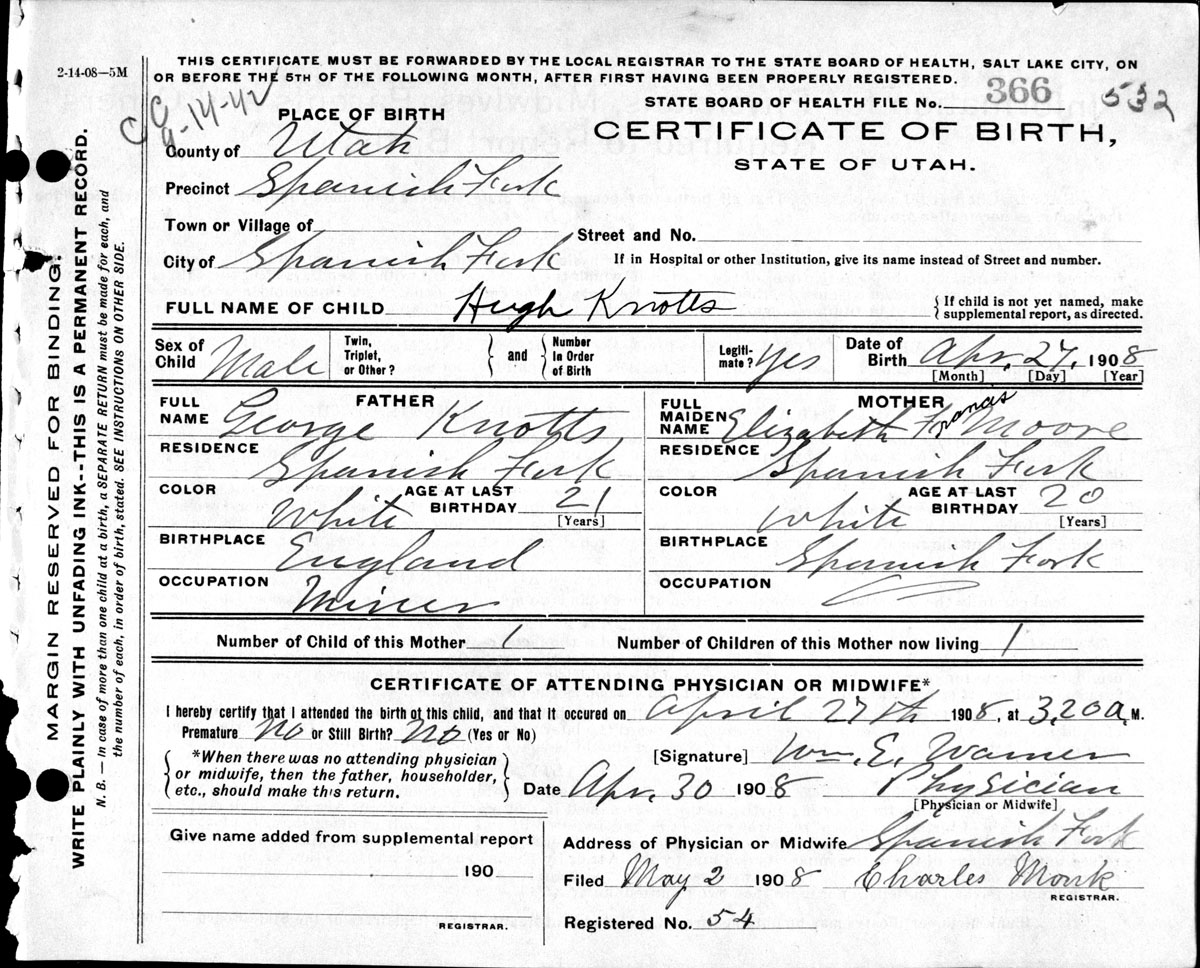 2-14-08—5M
THIS CERTIFICATE MUST BE FORWARDED BY THE LOCAL REGISTRAR TO THE STATE BOARD OF HEALTH, SALT LAKE CITY, ON
OR BEFORE THE 5TH OF THE FOLLOWING MONTH, AFTER FIRST HAVING BEEN PROPERLY REGISTERED.
STATE BOARD OF HEALTH FILE No. 366 532
CC
9-14-42
CERTIFICATE OF BIRTH,
STATE OF UTAH.
PLACE OF BIRTH
County of Utah
Precinct Spanish Fork
Town or Village of
Street and No.
City of Spanish Fork
If in Hospital or other Institution, give its name instead of Street and number.
FULL NAME OF CHILD Hugh Knotts
{If child is not yet named, make
supplemental report, as directed.
Sex of Child Male
Twin, Triplet, or Other?
} and {
Number In Order of Birth
Legiti-mate? Yes
Date of Birth Apr. 27, 1908
[Month] [Day] [Year]
FATHER
FULL NAME George Knotts
RESIDENCE Spanish Fork
COLOR White
AGE AT LAST BIRTHDAY 21
[Years]
BIRTHPLACE England
OCCUPATION Miner
MOTHER
FULL MAIDEN NAME Elizabeth Frances Moore
RESIDENCE Spanish Fork
COLOR White
AGE AT LAST BIRTHDAY 20
[Years]
BIRTHPLACE Spanish Fork
OCCUPATION
Number of Child of this Mother 1
Number of Children of this Mother now living 1
CERTIFICATE OF ATTENDING PHYSICIAN OR MIDWIFE*
I hereby certify that I attended the birth of this child, and that it occured on April 27th 1908, at 3,20 a, M.
Premature No or Still Birth? No (Yes or No)
{*When there was no attending physician
or midwife, then the father, householder,
etc., should make this return.}
[Signature] Wm. E. Warner
Date Apr. 30 1908 Physician
[Physician or Midwife]
Give name added from supplemental report
190
REGISTRAR.
Address of Physician or Midwife Spanish Fork
Filed May 2 1908 Charles Monk
REGISTRAR.
Registered No. 54
MARGIN RESERVED FOR BINDING.
WRITE PLAINLY WITH UNFADING INK--THIS IS A PERMANENT RECORD.
N. B. — In case of more than one child at a birth, a SEPARATE RETURN must be made for each, and
the number of each, in order of birth, stated. SEE INSTRUCTIONS ON OTHER SIDE.